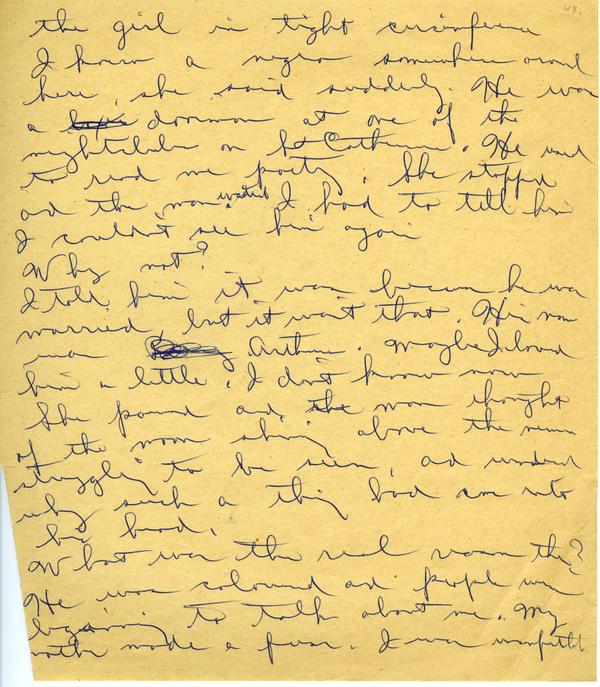 48.
the girl in tight circumference
I knew a negro somewhere around
here, she said suddenly. He was
a doorman at one of the
nightclubs on St Catherine. He used
to read me poetry. She stopped
and the man waited. I had to tell him
I couldn't see him again
Why not?
I told him it was because he was
married, but it wasn't that. His name
was Arthur. Maybe I loved
him a little. I don't know now
She paused and the man thought
of the moon shining above the
struggling to be seen, and wondered
why such a thing had come into
his head.
What was the real reason then?
He was coloured and people were
beginning to talk about me. My
mother made a fuss. I was